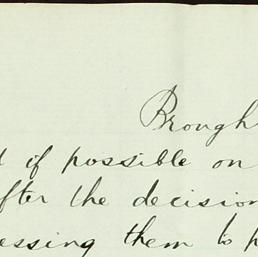 Brough
if possible on
after the decision
essing them to p